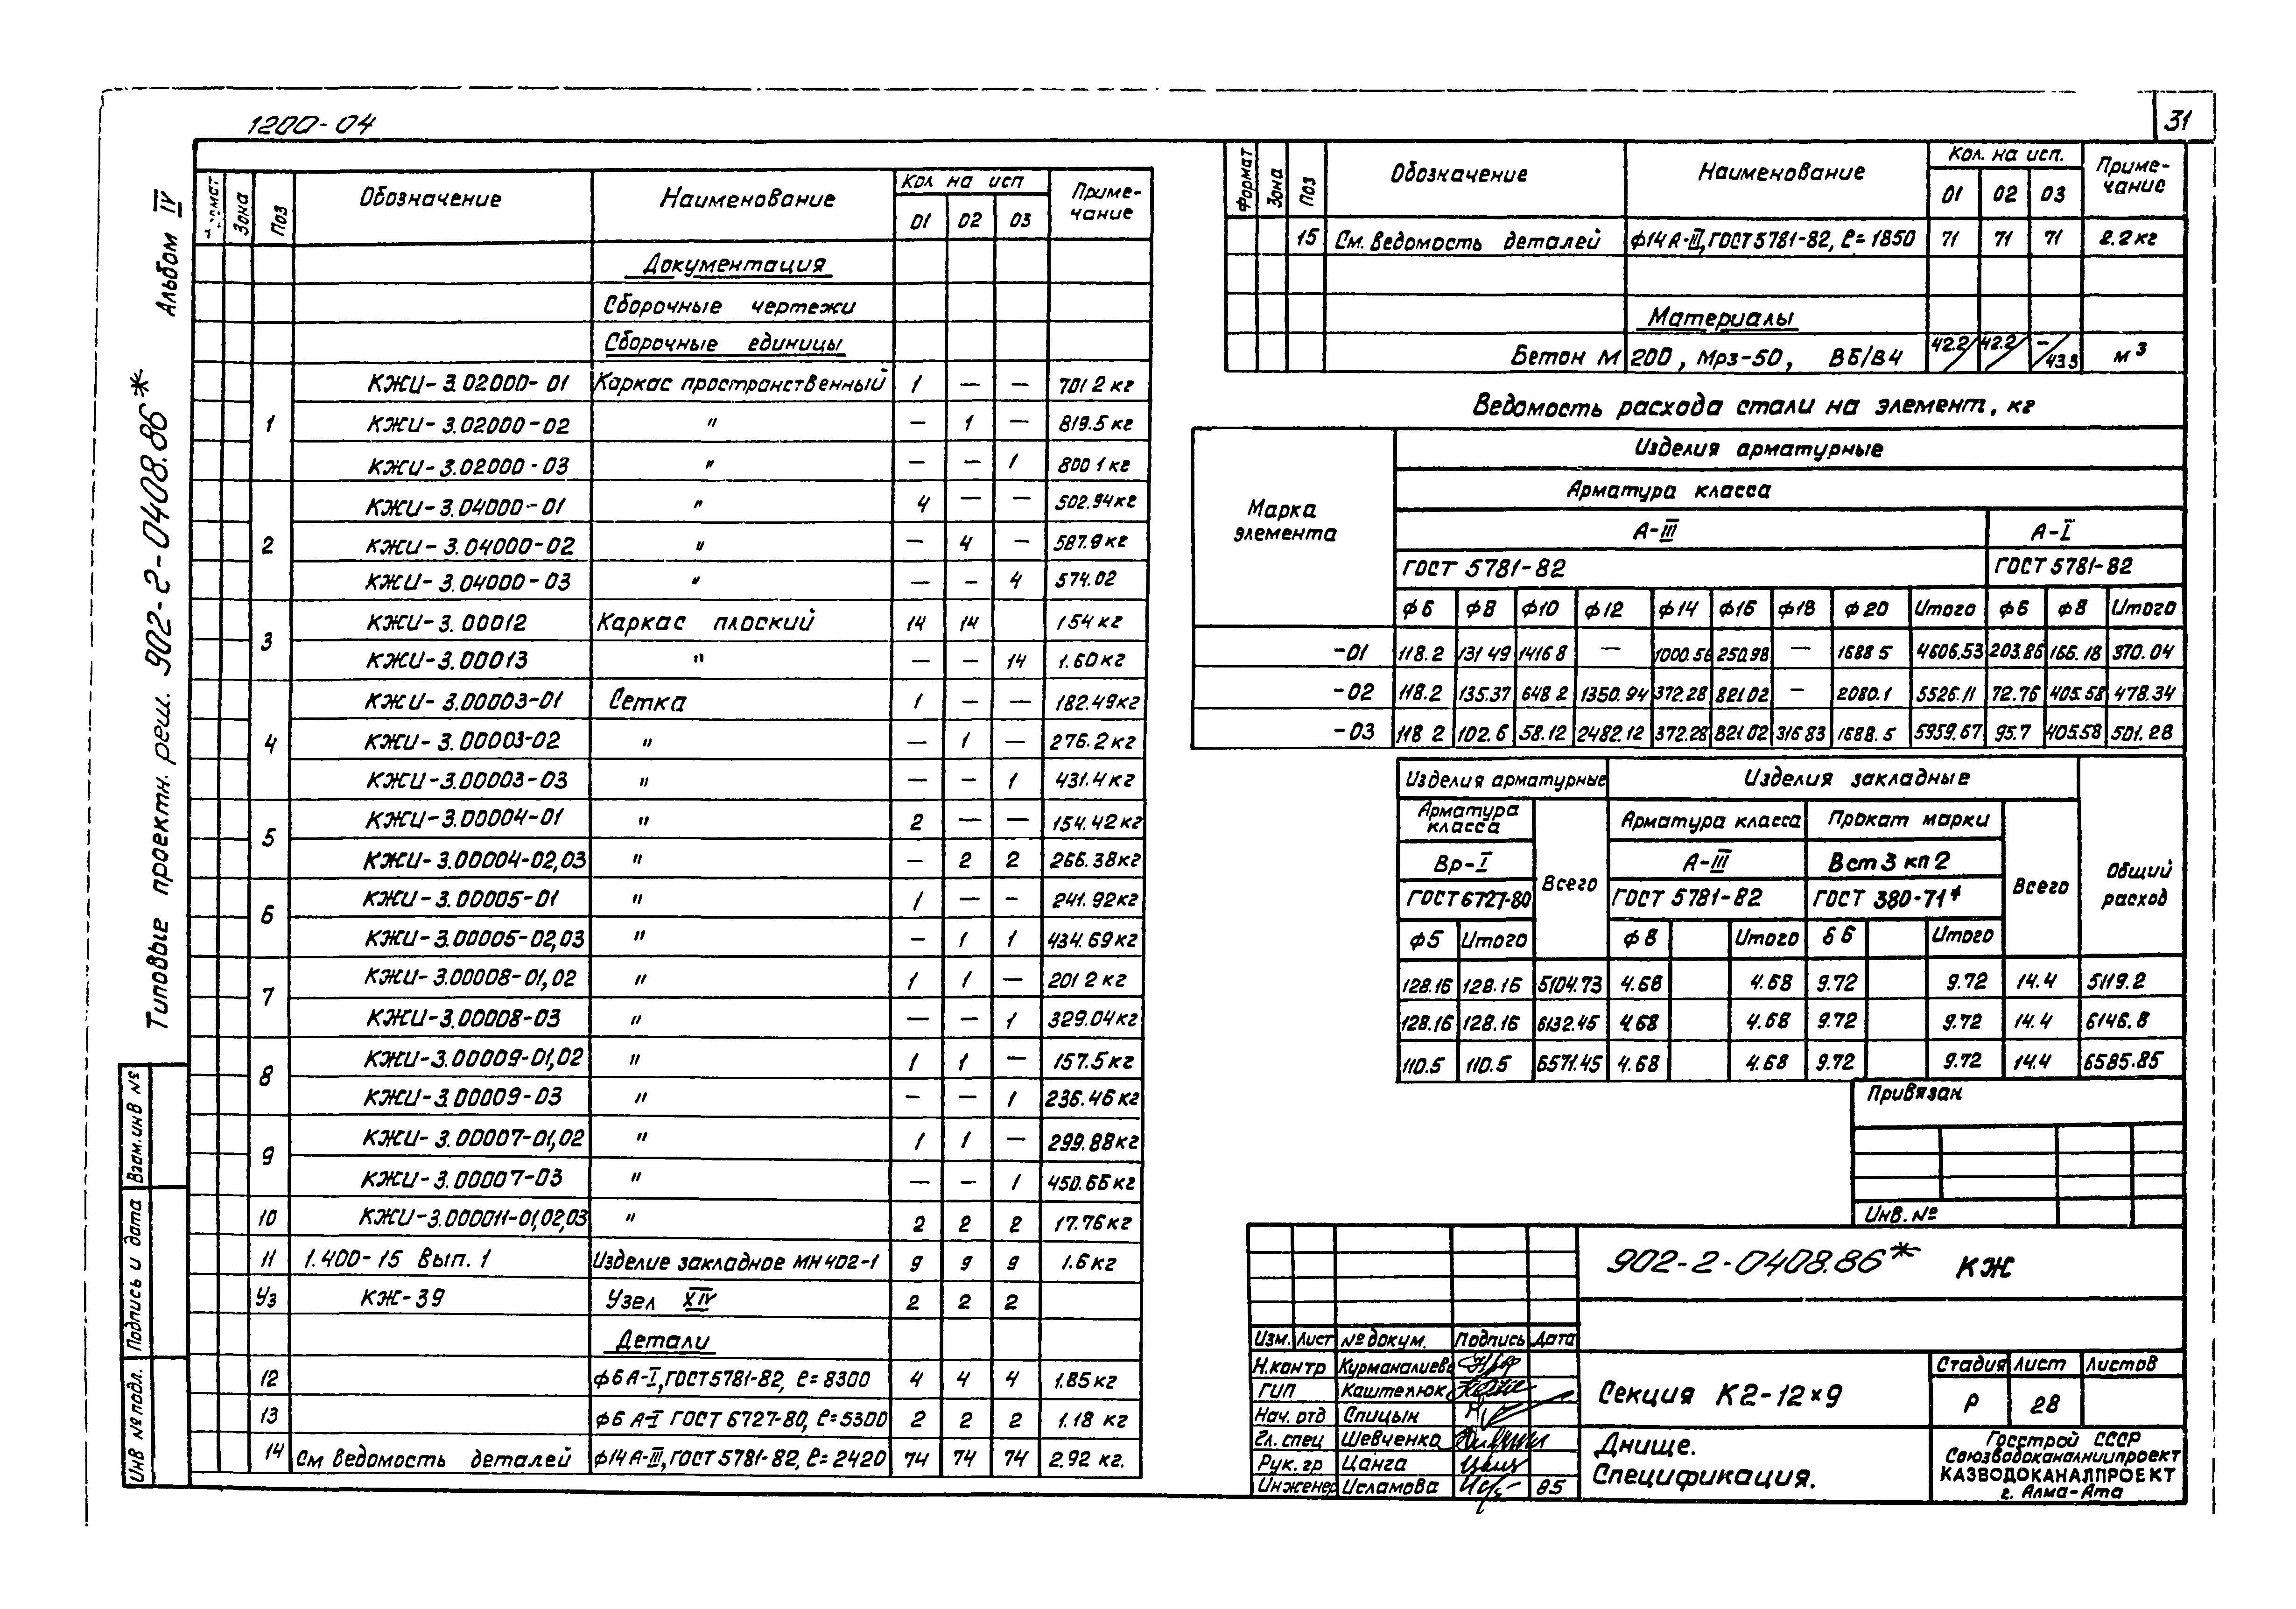 1200-04
31
Альбом IV
Типовые проектн. реш. 902-2-0408.86*
Взам.инв №
Подпись и дата
Инв № подл.
Зона Поз Обозначение Наименование Кол на исп Приме-чание
01 02 03
Документация
Сборочные чертежи
Сборочные единицы
1 КЖИ-3.02000-01 Каркас пространственный 1 — — 701 2 кг
КЖИ-3.02000-02 " — 1 — 819.5 кг
КЖИ-3.02000-03 " — — 1 800 1 кг
2 КЖИ-3.04000-01 " 4 — — 502.94кг
КЖИ-3.04000-02 " — 4 — 587.9 кг
КЖИ-3.04000-03 " — — 4 574.02
3 КЖИ-3.00012 Каркас плоский 14 14 154 кг
КЖИ-3.00013 " — — 14 1.60 кг
4 КЖИ-3.00003-01 Сетка 1 — — 182.49кг
КЖИ-3.00003-02 " — 1 — 276.2 кг
КЖИ-3.00003-03 " — — 1 431.4 кг
5 КЖИ-3.00004-01 " 2 — — 154.42кг
КЖИ-3.00004-02,03 " — 2 2 266.38кг
6 КЖИ-3.00005-01 " 1 — — 241.92кг
КЖИ-3.00005-02,03 " — 1 1 434.69кг
7 КЖИ-3.00008-01,02 " 1 1 — 201 2 кг
КЖИ-3.00008-03 " — — 1 329.04кг
8 КЖИ-3.00009-01,02 " 1 1 — 157.5кг
КЖИ-3.00009-03 " — — 1 236.46 кг
9 КЖИ-3.00007-01,02 " 1 1 — 299.88кг
КЖИ-3.00007-03 " — — 1 450.66кг
10 КЖИ-3.000011-01,02,03 " 2 2 2 17.76кг
11 1.400-15 Вып. 1 Изделие закладное МН402-1 9 9 9 1.6 кг
Уз КЖ-39 Узел XIV 2 2 2
Детали
12 ф6А-I,ГОСТ5781-82, ℓ=8300 4 4 4 1.85 кг
13 ф6 А-I ГОСТ 6727-80, ℓ=5300 2 2 2 1.18 кг
14 См ведомость деталей ф14А-III,ГОСТ5781-82, ℓ=2420 74 74 74 2.92 кг.
Формат Зона Поз Обозначение Наименование Кол. на исп. Приме-чание
01 02 03
15 См. ведомость деталей ф14А-III,ГОСТ5781-82, ℓ=1850 71 71 71 2.2 кг
Материалы
Бетон М 200, Мрз-50, В6/В4 42.2/ 42.2/ —/43.3 м³
Ведомость расхода стали на элемент, кг
Марка элемента
Изделия арматурные
Арматура класса
А-III А-I
ГОСТ 5781-82 ГОСТ 5781-82
ф6 ф8 ф10 ф12 ф14 ф16 ф18 ф20 Итого ф6 ф8 Итого
-01 118.2 131 49 1416 8 — 1000.56 250.98 — 1688 5 4606.53 203.86 166.18 370.04
-02 118.2 135.37 648 2 1350.94 372.28 821.02 — 2080.1 5526.11 72.76 405.58 478.34
-03 118 2 102.6 58.12 2482.12 372.28 821 02 316 83 1688.5 5959.67 95.7 405.58 501.28
Изделия арматурные Изделия закладные
Арматура класса Всего Арматура класса Прокат марки Всего Общий расход
Вр-I А-III Вст 3 кп 2
ГОСТ6727-80 ГОСТ 5781-82 ГОСТ 380-71*
ф5 Итого ф8 Итого δ6 Итого
128.16 128.16 5104.73 4.68 4.68 9.72 9.72 14.4 5119.2
128.16 128.16 6132.45 4.68 4.68 9.72 9.72 14.4 6146.8
110.5 110.5 6571.45 4.68 4.68 9.72 9.72 14.4 6585.85
Привязан
Инв. №
902-2-0408.86* КЖ
Изм. Лист № докум. Подпись Дата
Н.контр Курманалиева
ГИП Каштелюк
Нач. отд Спицын
Гл. спец Шевченко
Рук. гр Цанга
Инженер Исламова 85
Секция К2-12×9
Стадия Лист Листов
Р 28
Днище.
Спецификация.
Госстрой СССР
Союзводоканалниипроект
КАЗВОДОКАНАЛПРОЕКТ
г. Алма-Ата